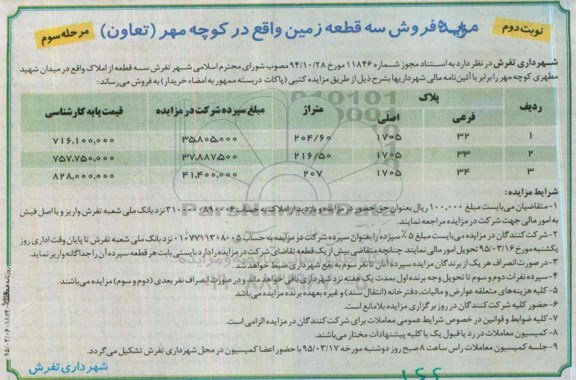 نوبت دوم
مزایده فروش سه قطعه زمین واقع در کوچه مهر (تعاون)
مرحله سوم
شهرداری تفرش در نظر دارد به استناد مجوز شماره ۱۱۸۴۶ مورخ ۹۴/۱۰/۲۸ مصوب شورای محترم اسلامی شهر تفرش سه قطعه از املاک واقع در میدان شهید
مطهری کوچه مهر را برابر با آئین‌نامه مالی شهرداریها بشرح ذیل از طریق مزایده کتبی (پاکات دربسته ممهور به امضاء خریدار) به فروش می‌رساند:
ردیف پلاک متراژ مبلغ سپرده شرکت در مزایده قیمت پایه کارشناسی
فرعی اصلی
۱ ۳۲ ۱۷۰۵ ۲۰۴/۶۰ ۳۵.۸۰۵.۰۰۰ ۷۱۶,۱۰۰,۰۰۰
۲ ۳۳ ۱۷۰۵ ۲۱۶/۵۰ ۳۷.۸۸۷.۵۰۰ ۷۵۷.۷۵۰.۰۰۰
۳ ۳۴ ۱۷۰۵ ۲۰۷ ۴۱.۴۰۰.۰۰۰ ۸۲۸,۰۰۰,۰۰۰
شرایط مزایده:
۱- متقاضیان می‌بایست مبلغ ۱۰۰.۰۰۰ ریال بعنوان حق حضور در مزایده و بازدید از املاک به حساب نزد بانک ملی شعبه تفرش واریز و با اصل فیش
به امور مالی جهت شرکت در مزایده مراجعه نمایند.
۲- شرکت کنندگان در مزایده می‌بایست مبلغ ۵٪ سپرده را بعنوان سپرده شرکت در مزایده به حساب ۰۱۰۷۷۱۱۳۰۸۰۰۵ نزد بانک ملی شعبه تفرش تا پایان وقت اداری روز
یکشنبه مورخ ۹۵/۰۳/۱۶ تحویل امور مالی نمایند. چنانچه متقاضی بیش از یک قطعه تقاضای شرکت در مزایده را دارد بایستی بابت هر قطعه سپرده آن را جداگانه واریز نماید.
۳- در صورت انصراف هر یک از برندگان مزایده سپرده آنان تا نفر سوم به نفع شهرداری ضبط خواهد شد.
۴- سپرده نفرات دوم و سوم تا تحویل وجه برنده اول بمدت یک هفته نزد شهرداری باقی خواهد ماند و در صورت انصراف نفر بعدی (دوم و سوم) مزایده می‌باشند
۵- کلیه هزینه‌های متعلقه عوارض و مالیات، دفترخانه (انتقال سند) و غیره بعهده برنده مزایده می‌باشد
۶- حضور کلیه شرکت‌کنندگان در روز برگزاری مزایده بلامانع است.
۷- کلیه ضوابط و قوانین در خصوص شرایط عمومی معاملات برای شرکت‌کنندگان در مزایده الزامی است.
۸- کمیسیون معاملات در رد یا قبول یک یا کلیه پیشنهادات مختار می‌باشد.
۹- جلسه کمیسیون معاملات راس ساعت ۸ صبح روز دوشنبه مورخه ۹۵/۰۳/۱۷ با حضور اعضا کمیسیون در محل شهرداری تفرش تشکیل می‌گردد.
شهرداری تفرش